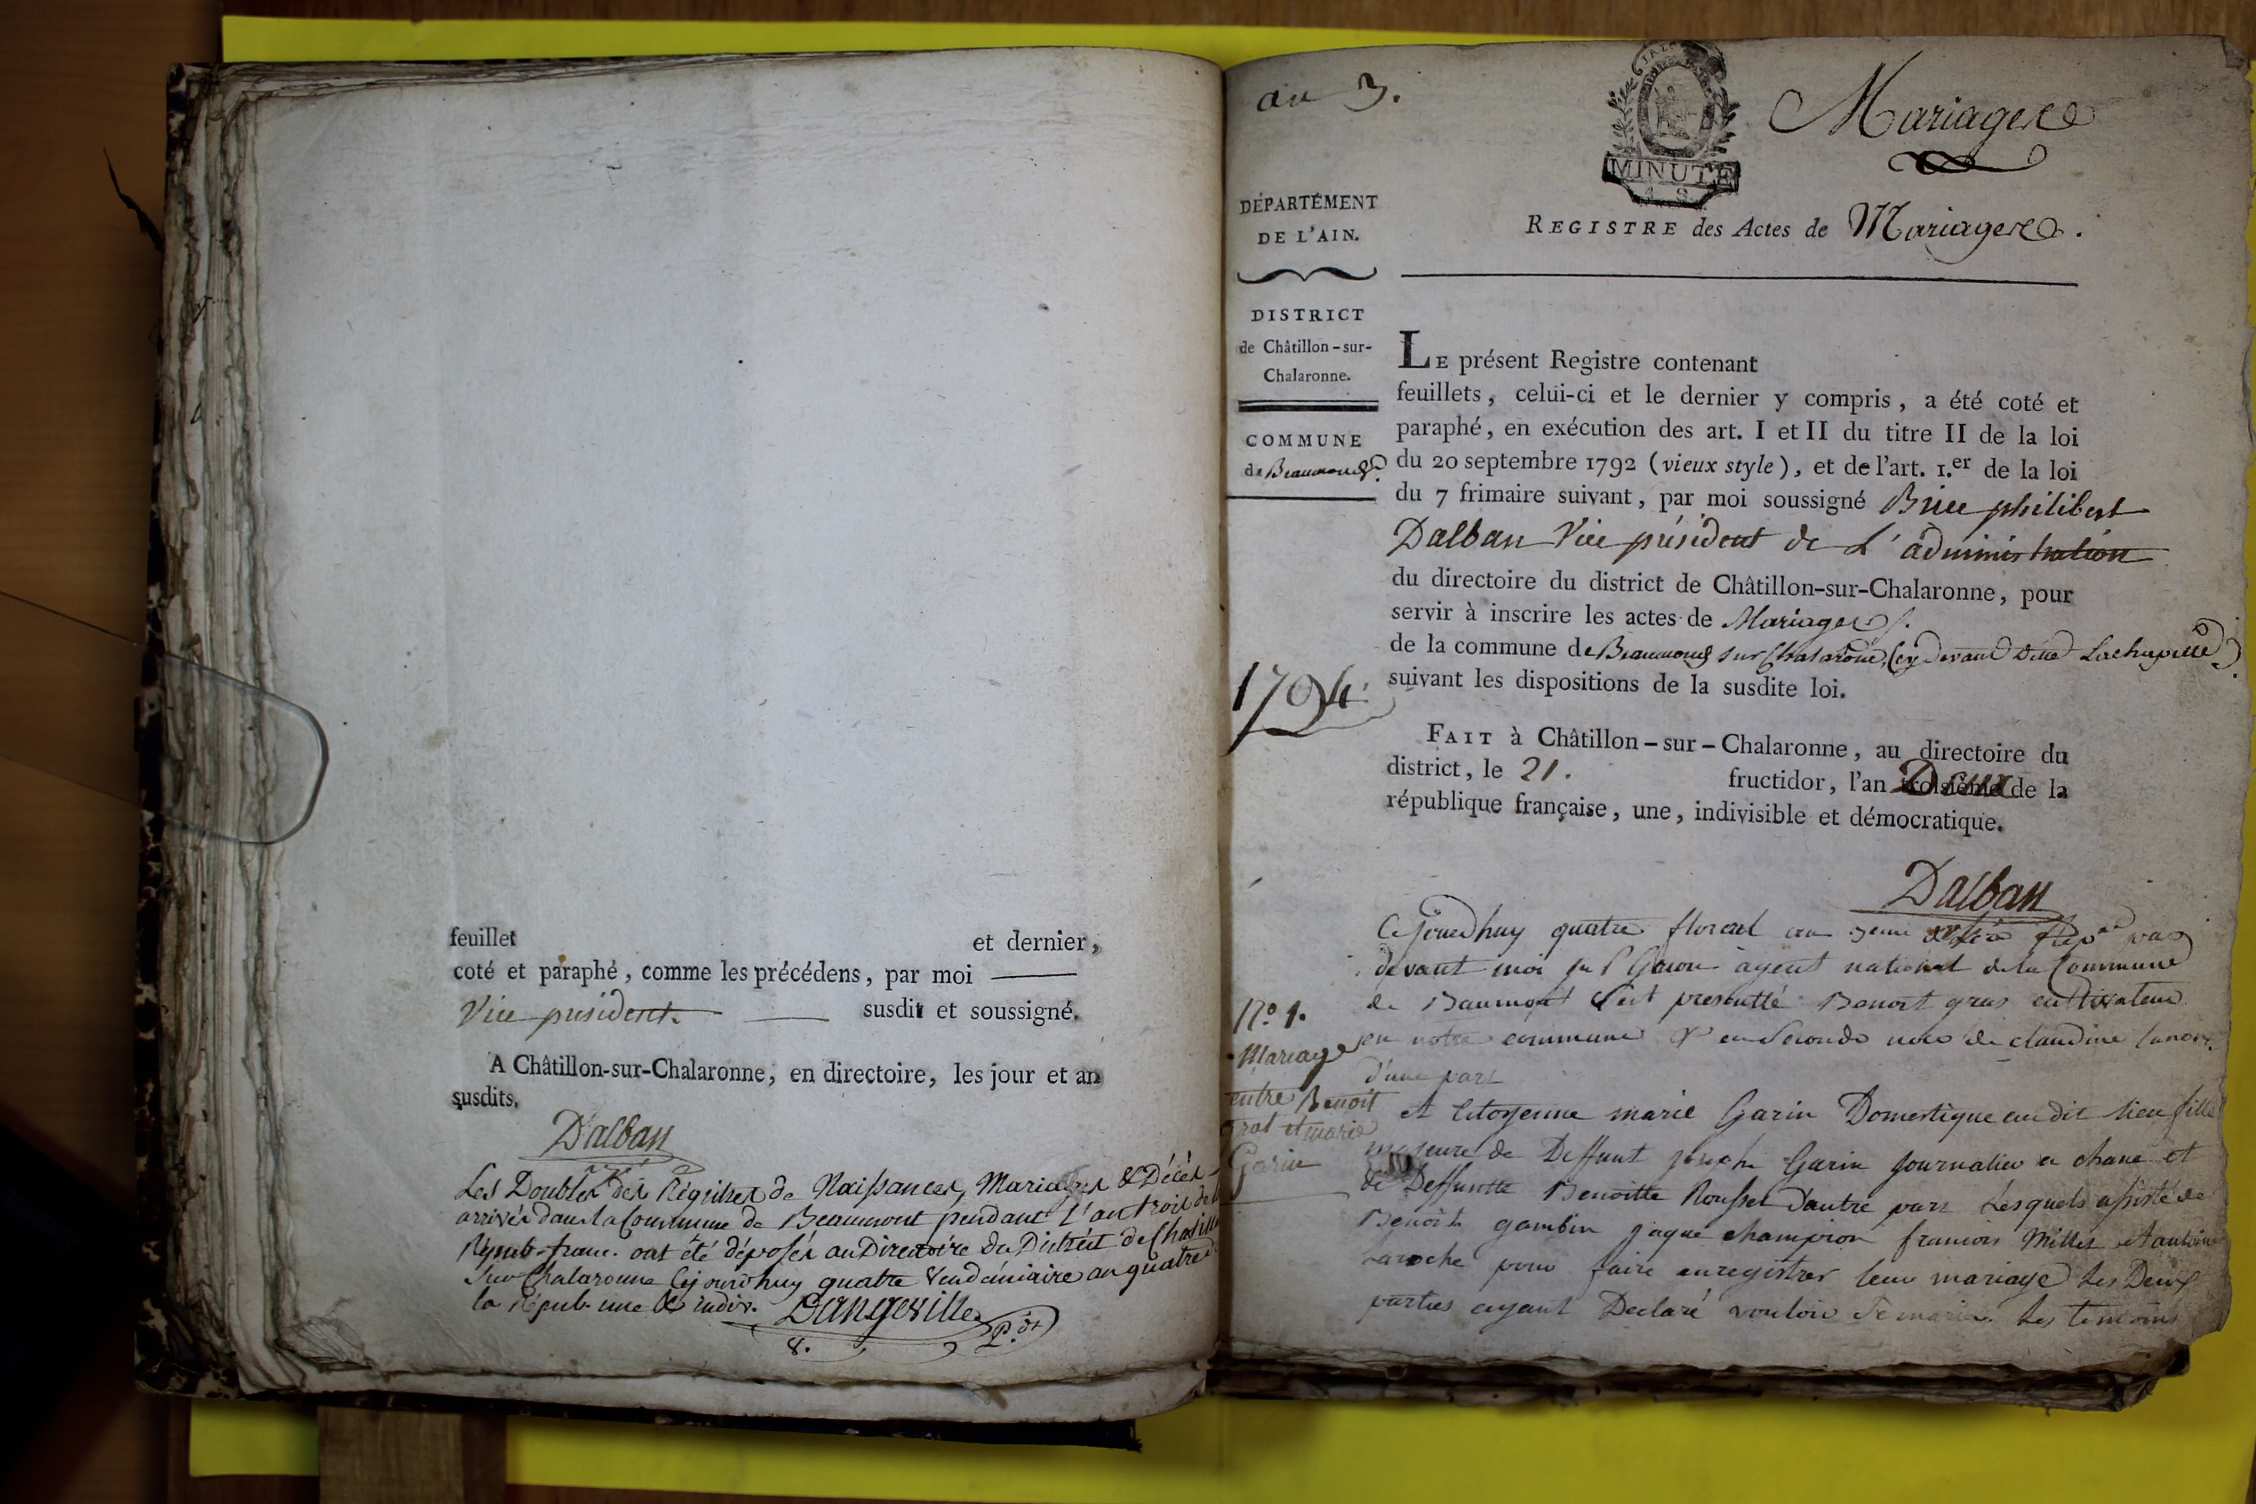 feuillet et dernier,
coté et paraphé, comme les précédens, par moi
Vice président. susdit et soussigné.
A Châtillon-sur-Chalaronne, en directoire, les jour et an
susdits.
Dalban
Les Doubles des Régistres de Naissances, Mariages & Décès
arrivés dans la Commune de Beaumont pendant l'an trois de la
Répub. franc. ont été déposés au Directoire du District de Chatillon
sur Chalaronne Cejourd'huy quatre Vendémiaire an quatre de
la répub. une & indiv. Dangeville
P.dt
an 3.
Mariages
MINUTE
DÉPARTÉMENT
DE L'AIN.
REGISTRE des Actes de Mariages.
DISTRICT
de Châtillon-sur-
Chalaronne.
COMMUNE
de Beaumond
LE présent Registre contenant
feuillets, celui-ci et le dernier y compris, a été coté et
paraphé, en exécution des art. I et II du titre II de la loi
du 20 septembre 1792 (vieux style), et de l'art. 1.er de la loi
du 7 frimaire suivant, par moi soussigné Brice philibert
Dalban Vice président de L'administration
du directoire du district de Châtillon-sur-Chalaronne, pour
servir à inscrire les actes de Mariages
de la commune de Beaumond sur Chalarone, (cy devant ditte Lachapelle)
suivant les dispositions de la susdite loi.
1794
FAIT à Châtillon-sur-Chalaronne, au directoire du
district, le 21. fructidor, l'an Deux de la
république française, une, indivisible et démocratique.
Dalban
Cejourdhuy quatre floreal an 3eme de la Rep par
devant moi agent national de la Commune
de Baumont s'est presentté Benoit gras cultivateur
en notre commune & en seconde noce de claudine
d'une part
N.o 1.
Mariage
entre Benoit
grat et marie
Garin
et Citoyenne marie Garin Domestique au dit lieu fille
majeure de Deffunt joseph Garin journalier a chane et
de Deffuntte Benoitte Rousset d'autre part Lesquels assisté de
Benoit gambin jaque champion francois Millet et antoine
Laroche pour faire enregistrer leur mariage Les Deux
parties ayant Declaré vouloir se marier Les temoins